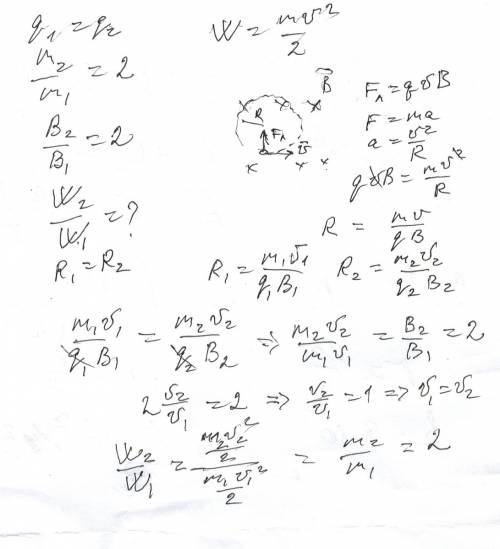 q₁ = q₂
m₂/m₁ = 2
B₂/B₁ = 2
W₂/W₁ = ?
R₁ = R₂
W = mv²/2
B⃗
R
Fл
v⃗
Fл = qvB
F = ma
a = v²/R
qvB = mv²/R
R = mv/qB
R₁ = m₁v₁/q₁B₁ R₂ = m₂v₂/q₂B₂
m₁v₁/q₁B₁ = m₂v₂/q₂B₂ => m₂v₂/m₁v₁ = B₂/B₁ = 2
2 v₂/v₁ = 2 => v₂/v₁ = 1 => v₁ = v₂
W₂/W₁ = (m₂v₂²/2)/(m₁v₁²/2) = m₂/m₁ = 2